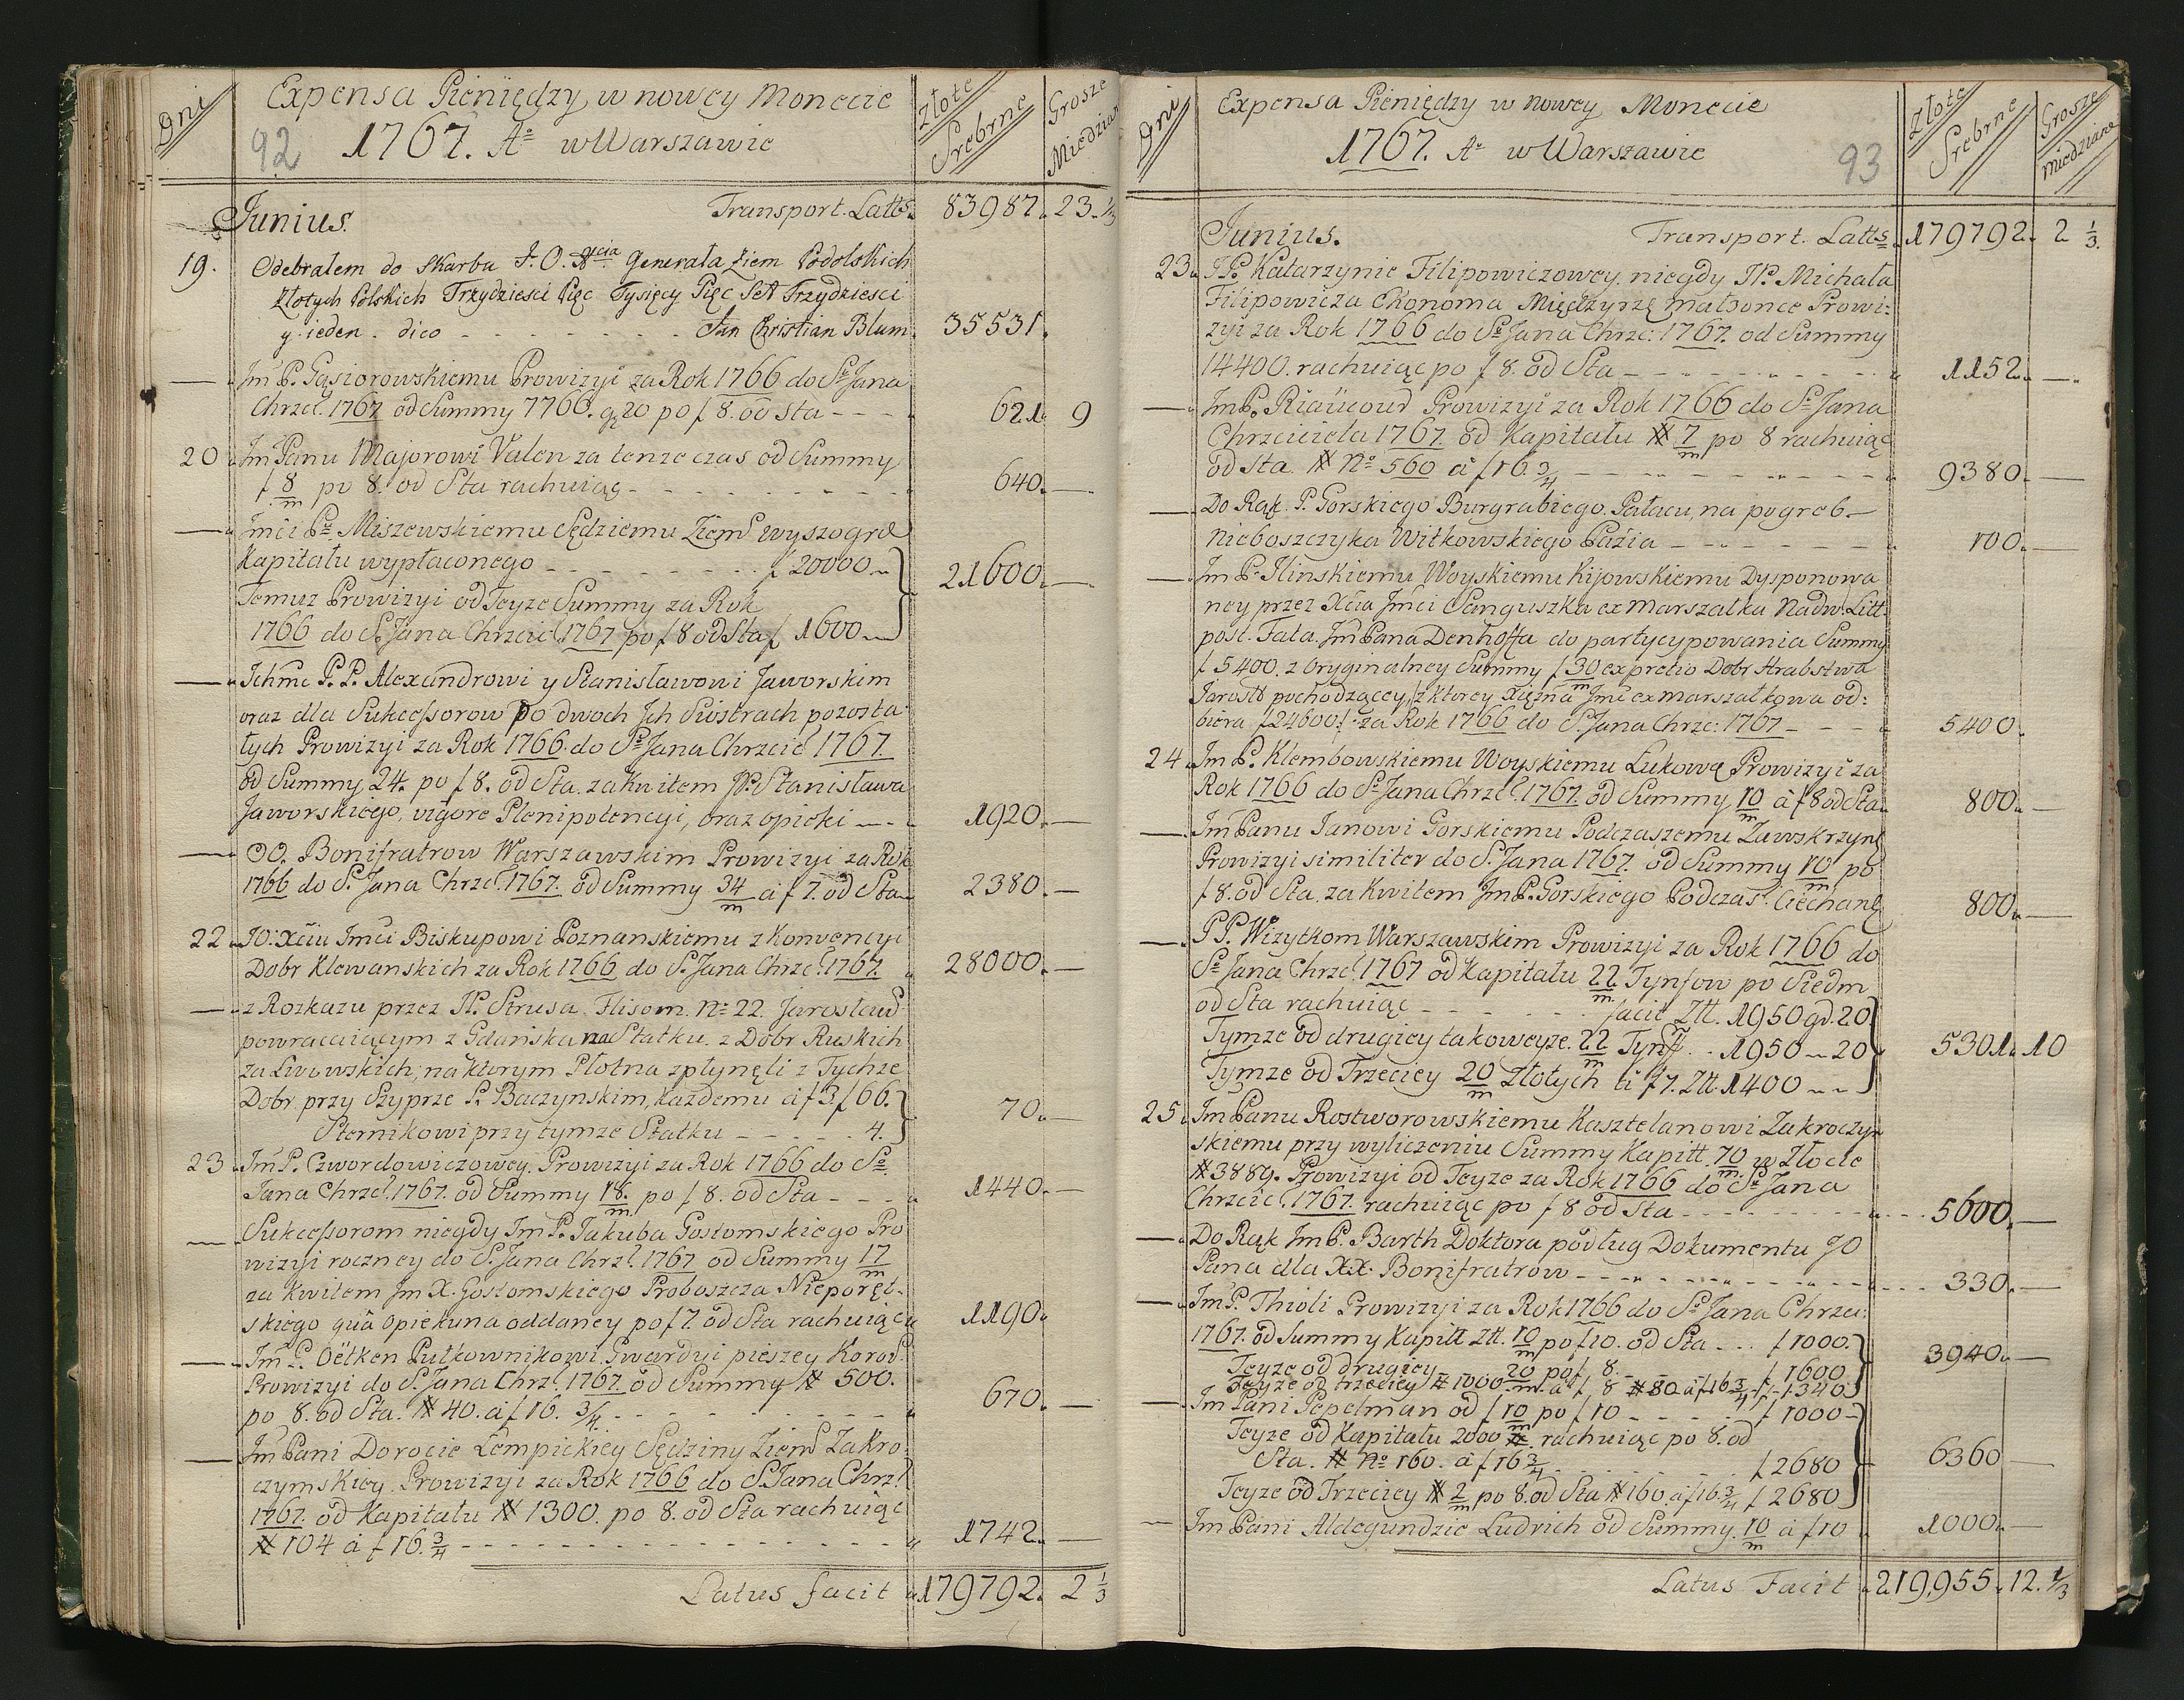 Dni
Expensa Pieniędzy w nowey Monecie
92 1767. Aº w Warszawie
Złote Srebrne
Grosze Miedziane
Junius. Transport. Latts 83987. 23. 1/3
19. Odebrałem do Skarbu J. O. Xcia Generała Ziem Podolskich
Złotych Polskich Trzydziesci Pięc Tysięcy Pięc Set Trzydziesci
y ieden. dico - - - Jan Christian Blum. 35531.
— Jm P. Gąsiorowskiemu Prowizyi za Rok 1766 do Sº Jana
Chrzci. 1767 od Summy 7766. g 20 po f 8. od Sta - - - 621. 9
20. Jm Panu Majorowi Valen za tenze czas od Summy
f 8/m po 8. od Sta rachuiąc - - - 640. —
— Jmci Pº Miszewskiemu Sędziemu Ziems Wyszogrd
Kapitału wypłaconego - - - f 20000.
21600. —
Temuz Prowizyi od Teyze Summy za Rok
1766 do S. Jana Chrzcic. 1767 po f 8 od Sta f 1600
— Ichmc P. P. Alexandrowi y Stanisławowi Jaworskim
oraz dla Sukcessorow po dwoch Jch Siostrach pozosta-
łych Prowizyi za Rok 1766. do Sº Jana Chrzcic. 1767.
od Summy 24. po f 8. od Sta. za Kwitem JP. Stanisława
Jaworskiego, vigore Plenipotencyi, oraz opieki - - - 1920. —
— OO. Bonifratrow Warszawskim Prowizyi za Rok
1766 do S. Jana Chrzc. 1767. od Summy 34/m a f 7. od Sta 2380. —
22. JO: Xciu Jmci Biskupowi Poznanskiemu z Konwencyi
Dobr Klewanskich za Rok 1766 do S. Jana Chrzc. 1767. 28000. —
— z Rozkazu przez JP. Strusa. Flisom. Nº 22. Jarosław
powracaiącym z Gdańska na Statku. z Dobr Ruskich
za Lwowskich, na ktorym Płotna zpłynęli z Tychze
Dobr. przy Szyprze P. Baczynskim, każdemu a f 3 f 66.
70. —
Sternikowi przy tymze Statku - - - 4.
23. Jm P. Czwordowiczowey. Prowizyi za Rok 1766 do Sº
Jana Chrzc. 1767. od Summy 18/m. po f 8. od Sta - - - 1440. —
— Sukcessorom niegdy Jm P. Jakuba Gostomskiego Pro
wizyi roczney do S. Jana Chrz. 1767 od Summy 17/m
za Kwitem Jm X. Gostomskiego Proboszcza Nieporęt-
skiego quà opiekuna oddaney po f 7 od Sta rachuiąc 1190.
— Jm P. Oëtken Pułkownikowi. Gwardyi pieszey Koron.
Prowizyi do S. Jana Chrz. 1767. od Summy # 500.
po 8. od Sta. # 40. a f 16. 3/4. - - - 670. —
— Jm Pani Dorocie Lempickiey Sędziny Ziems Zakro-
czymskiey. Prowizyi za Rok 1766 do S. Jana Chrz.
1767. od Kapitału # 1300. po 8. od Sta rachuiąc
# 104 à f 16. 3/4 - - - 1742. —
Latus facit 179792. 2 1/3
Dni
Expensa Pieniędzy w nowey Monecie
1767. Aº w Warszawie 93
Złote Srebrne
Grosze Miedziane
Junius. Transport. Latts 179792. 2 1/3.
23. JP. Katarzynie Filipowiczowey. niegdy JP. Michała
Filipowicza Ekonoma Międzyrzę małsonce Prowi-
zyi za Rok 1766 do Sº Jana Chrzc: 1767. od Summy
14400. rachuiąc po f 8. od Sta - - - 1152. —
— Jm P. Riaucour Prowizyi za Rok 1766 do Sº Jana
Chrzciciela 1767. od Kapitału # 7/m po 8 rachuiąc
od Sta. # Nº 560 à f 16 3/4 - - - 9380. —
— Do Rąk. P. Gorskiego Burgrabiego. Pałacu, na pogreb.
nieboszczyka Witkowskiego Pazia - - - 100. —
— Jm P. Ilinskiemu Woyskiemu Kijowskiemu Dysponowa
ney przez Xcia Jmci Sanguszka ex Marszałka Nadw. Litt.
post. Fata. Jm Pana Denhoffa do partycypowania Summy
f 5400. z Oryginalney Summy f 30/m ex pretio Dobr Hrabstwa
Jarosł pochodzącey, z ktorey Xiężna Jmc ex marszałkowa od-
biera f 24600. za Rok 1766 do S. Jana Chrzc: 1767 - - - 5400.
24. Jm P. Klembowskiemu Woyskiemu Łukows Prowizyi za
Rok 1766 do Sº Jana Chrzc. 1767. od Summy 10/m à f 8 od Sta. 800. —
— Jm Panu Janowi Gorskiemu Podczaszemu Zawskrzyns
Prowizyi similiter do S. Jana 1767. od Summy 10/m po
f 8. od Sta. za Kwitem Jm P. Gorskiego Podczas. Ciechans 800. —
— PP. Wizytkom Warszawskim Prowizyi za Rok 1766 do
Sº Jana Chrzc. 1767 od Kapitału 22/m Tynfow po Siedm
od Sta rachuiąc - - - facit Ztt. 1950 gd. 20
Tymze od drugiey takoweyze. 22/m Tynff. - - 1950 — 20 5301. 10
Tymze od Trzeciey 20/m Złotych à f 7. Ztt. 1400
25. Jm Panu Rostworowskiemu Kasztelanowi Zakroczym
skiemu przy wyliczeniu Summy Kapitt. 70/m. w Złocie
# 3889. Prowizyi od Teyze za Rok 1766 do Sº Jana
Chrzcic. 1767. rachuiąc po f 8 od Sta - - - 5600. —
— Do Rąk Jm P. Barth Doktora podług Dokumentu JO
Pana dla XX. Bonifratrow - - - 330. —
— Jm P. Thioli Prowizyi za Rok 1766 do Sº Jana Chrzci:
1767. od Summy Kapitt Ztt. 10/m po f 10. od Sta - - - f 1000.
Teyze od drugiey - - - 20/m po f 8. - - - f 1600 3940. —
Teyze od trzeciey # 1000 à f 8 # 80 à f 16 3/4 f 1340.
— Jm Pani Pepelman od f 10/m po f 10 - - - f 1000
Teyze od Kapitału 2000 #. rachuiąc po 8. od
Sta. # Nº 160. à f 16 3/4 - - - f 2680 6360 —
Teyze od Trzeciey # 2/m po 8. od Sta # 160. à f 16. 3/4 f 2680
— Jm Pani Aldegundzie Ludrich od Summy. 10/m à f 10 1000. —
Latus Facit 219,955. 12. 1/3